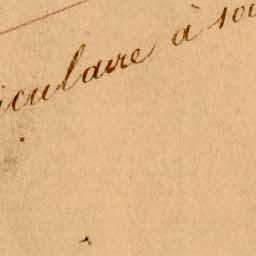 iculaire à soi